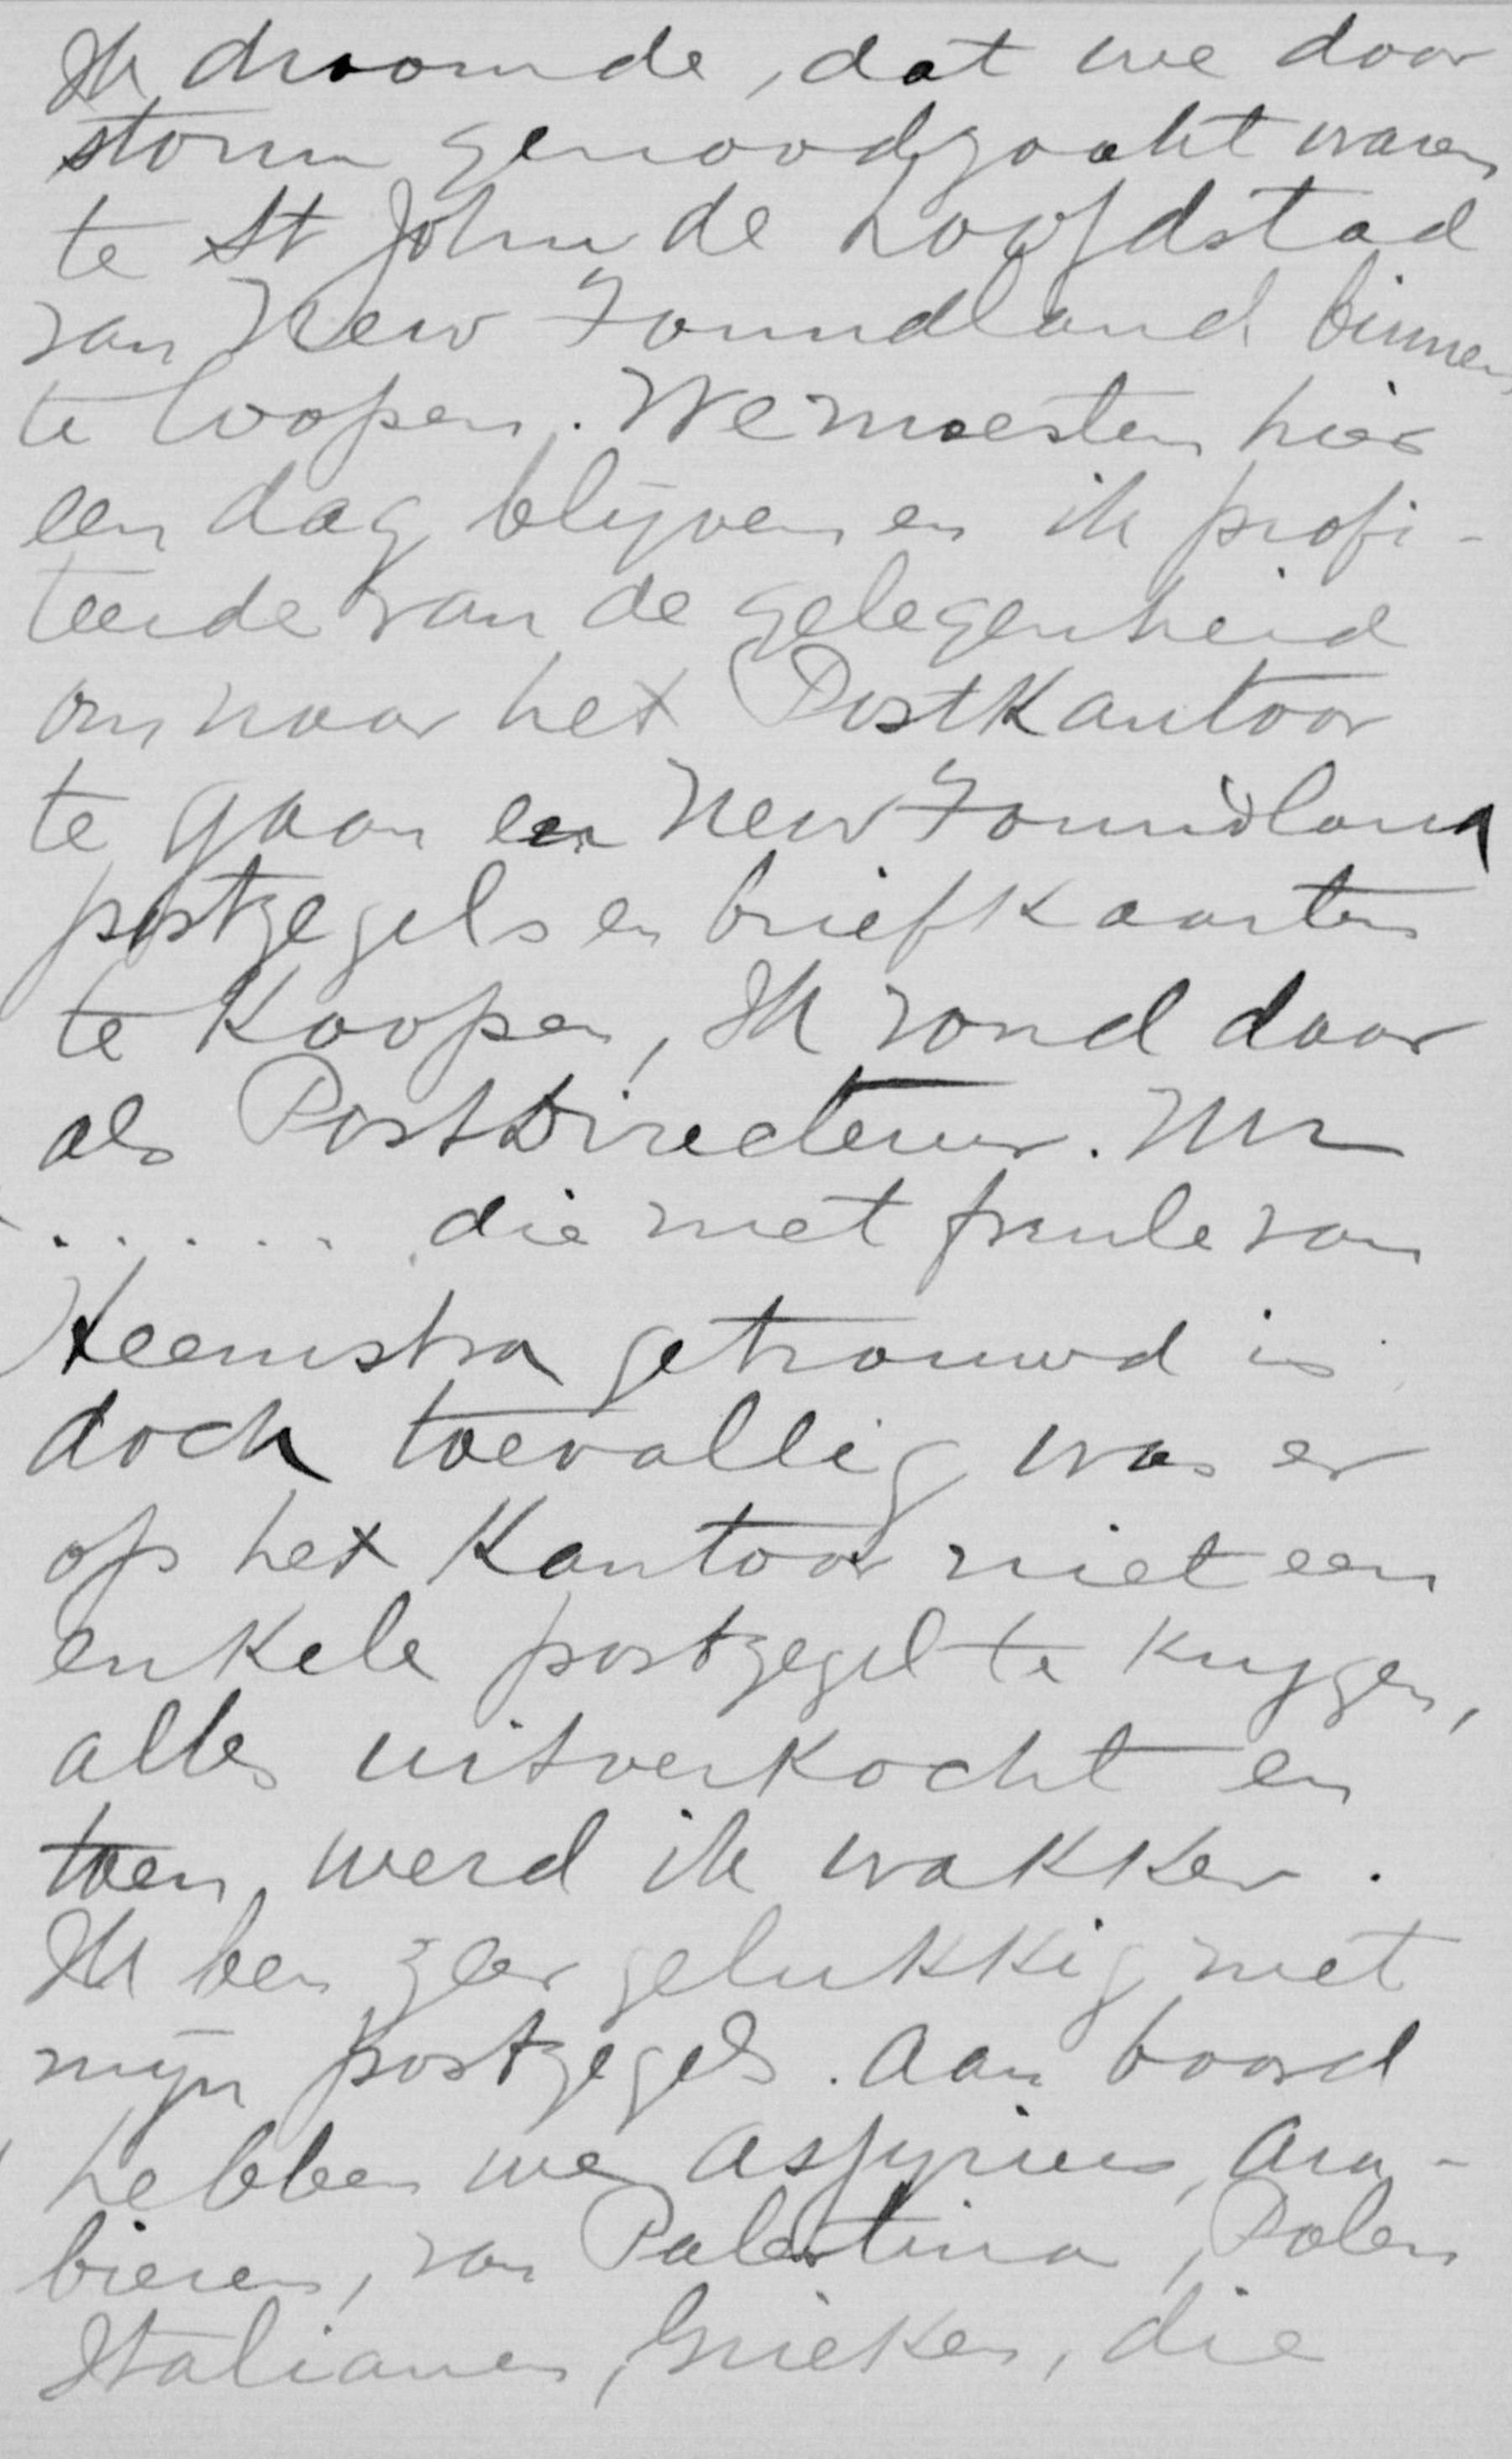 Ik droomde, dat we door
storm genoodzaakt waren
te St John de hoofdstad
van New Foundland binnen
te loopen. We moesten hier
een dag blijven en ik profi-
teerde van de gelegenheid
om naar het Postkantoor
te gaan en New Foundland
postzegels en briefkaarten
te koopen, Ik vond daar
als PostDirecteur. Mr
...... die met freule van
Heemstra getrouwd is
doch toevallig was er
op het Kantoor niet een
enkele postzegel te krijgen,
alles uitverkocht en
toen werd ik wakker.
Ik ben zeer gelukkig met
mijn postzegels. Aan boord
hebben we Assyriers, Ara-
bieren, van Palestina, Polen
Italianen, Grieken, die